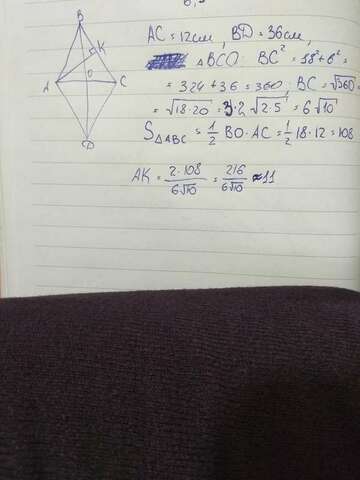 AC = 12см, BD = 36см,
△BCO: BC² = 18² + 6² =
= 324 + 36 = 360; BC = √360 =
= √18·20 = 3·2√2·5 = 6√10
S△ABC = 1/2 BO·AC = 1/2 18·12 = 108
AK = 2·108/6√10 = 216/6√10 ≈ 11
B
K
O
A
C
D